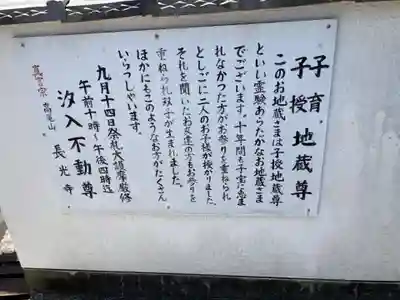 子育
子授 地蔵尊
このお地蔵さまは子授地蔵尊
といい霊験あらたかなお地蔵さま
でございます。十年間も子宝に恵ま
れなかつた方がお参りを重ねられ
としごに二人のお子様が授かりました。
それを聞いたお友達の方もお参りを
重ねられ双子が生まれました。
ほかにもこのようなお方がたくさん
いらつしやいます。
九月十四日祭礼大護摩厳修
午前十時〜午後四時迄
汐入不動尊
真言宗 高尾山 長光寺